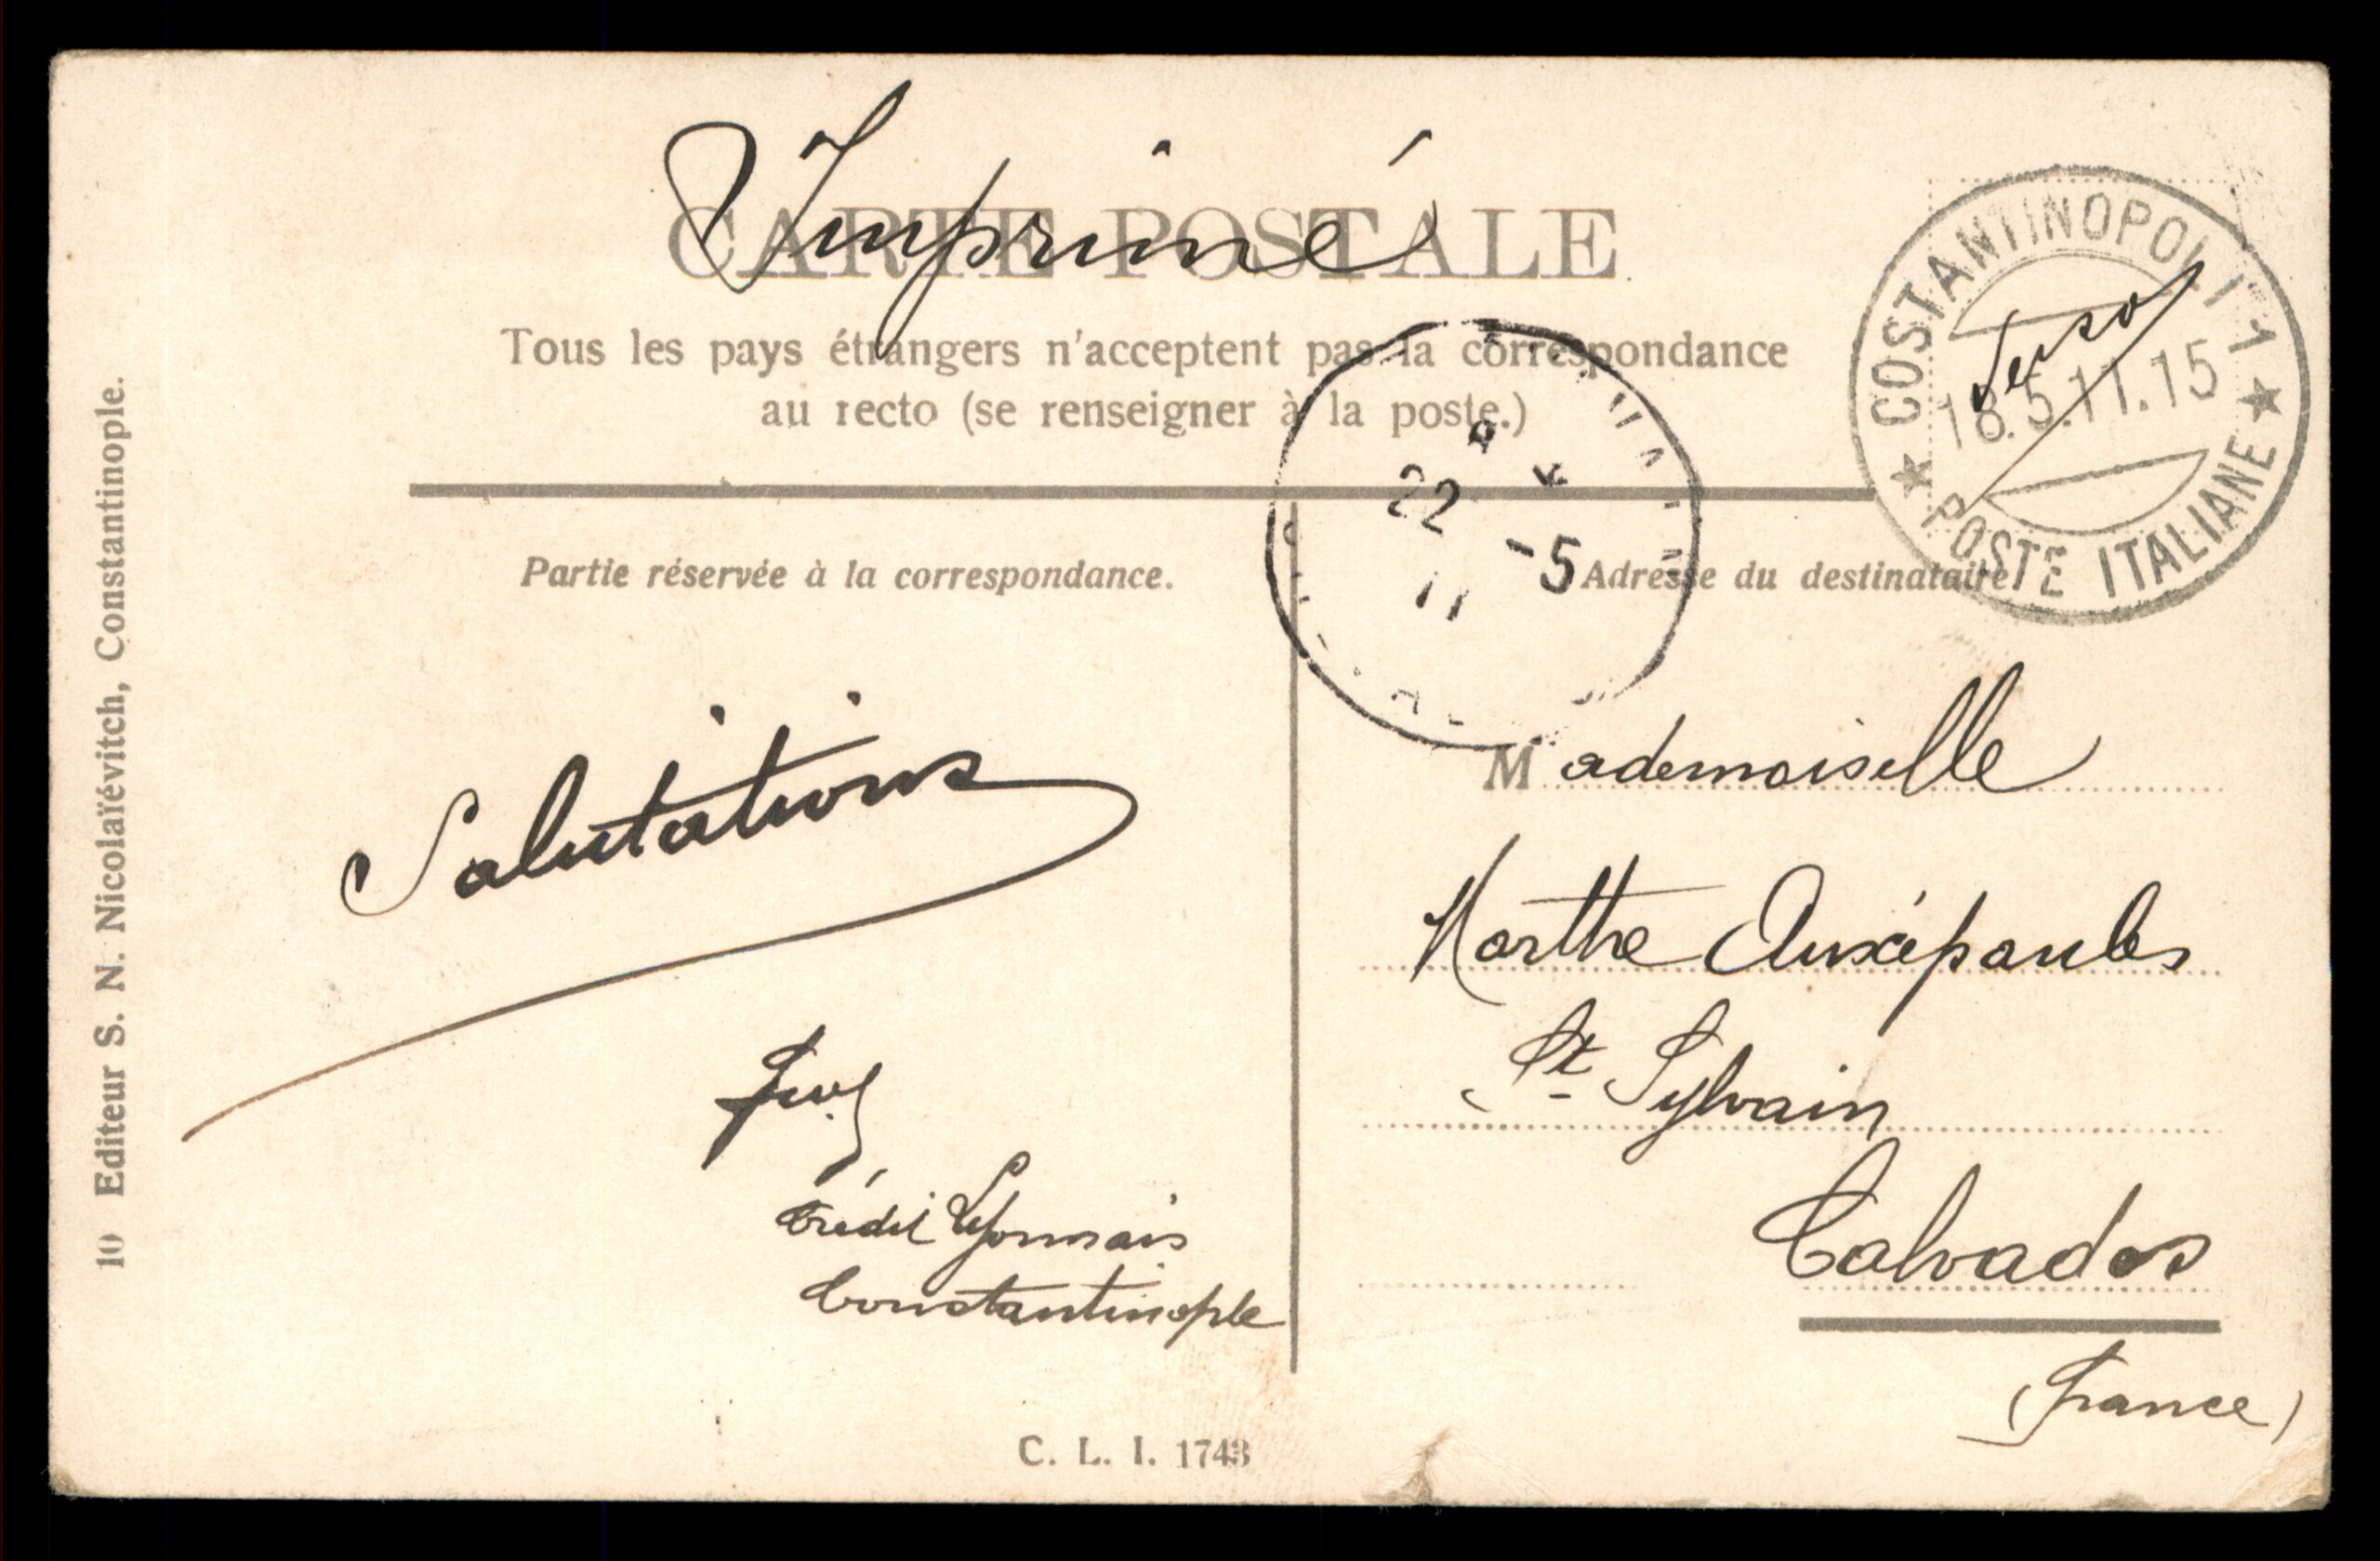 Imprimé
CARTE POSTALE
Tous les pays étrangers n'acceptent pas la correspondance
au recto (se renseigner à la poste.)
COSTANTINOPOLI 1
18.5.11.15
POSTE ITALIANE
22 -5
11
Partie réservée à la correspondance.
Adresse du destinataire
Salutations
Crédit Lyonnais
Constantinople
Mademoiselle
Marthe Auxépaules
St Sylvain
Calvados
(France)
10 Editeur S. N. Nicolaïévitch, Constantinople.
C. L. I. 1743